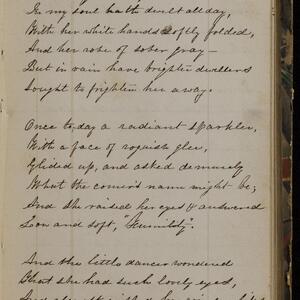 In my soul hath dwelt all day,
With her white hands softly folded,
And her robe of sober gray—
But in vain have brighter dwellers
Sought to frighten her away.
Once to-day a radiant sparkler,
With a face of roguish glee,
Glided up, and asked demurely
What the comer's name might be;
And she raised her eyes & answered
Low and soft, "Humility".
And the little dancer wondered
That she had such lovely eyes,